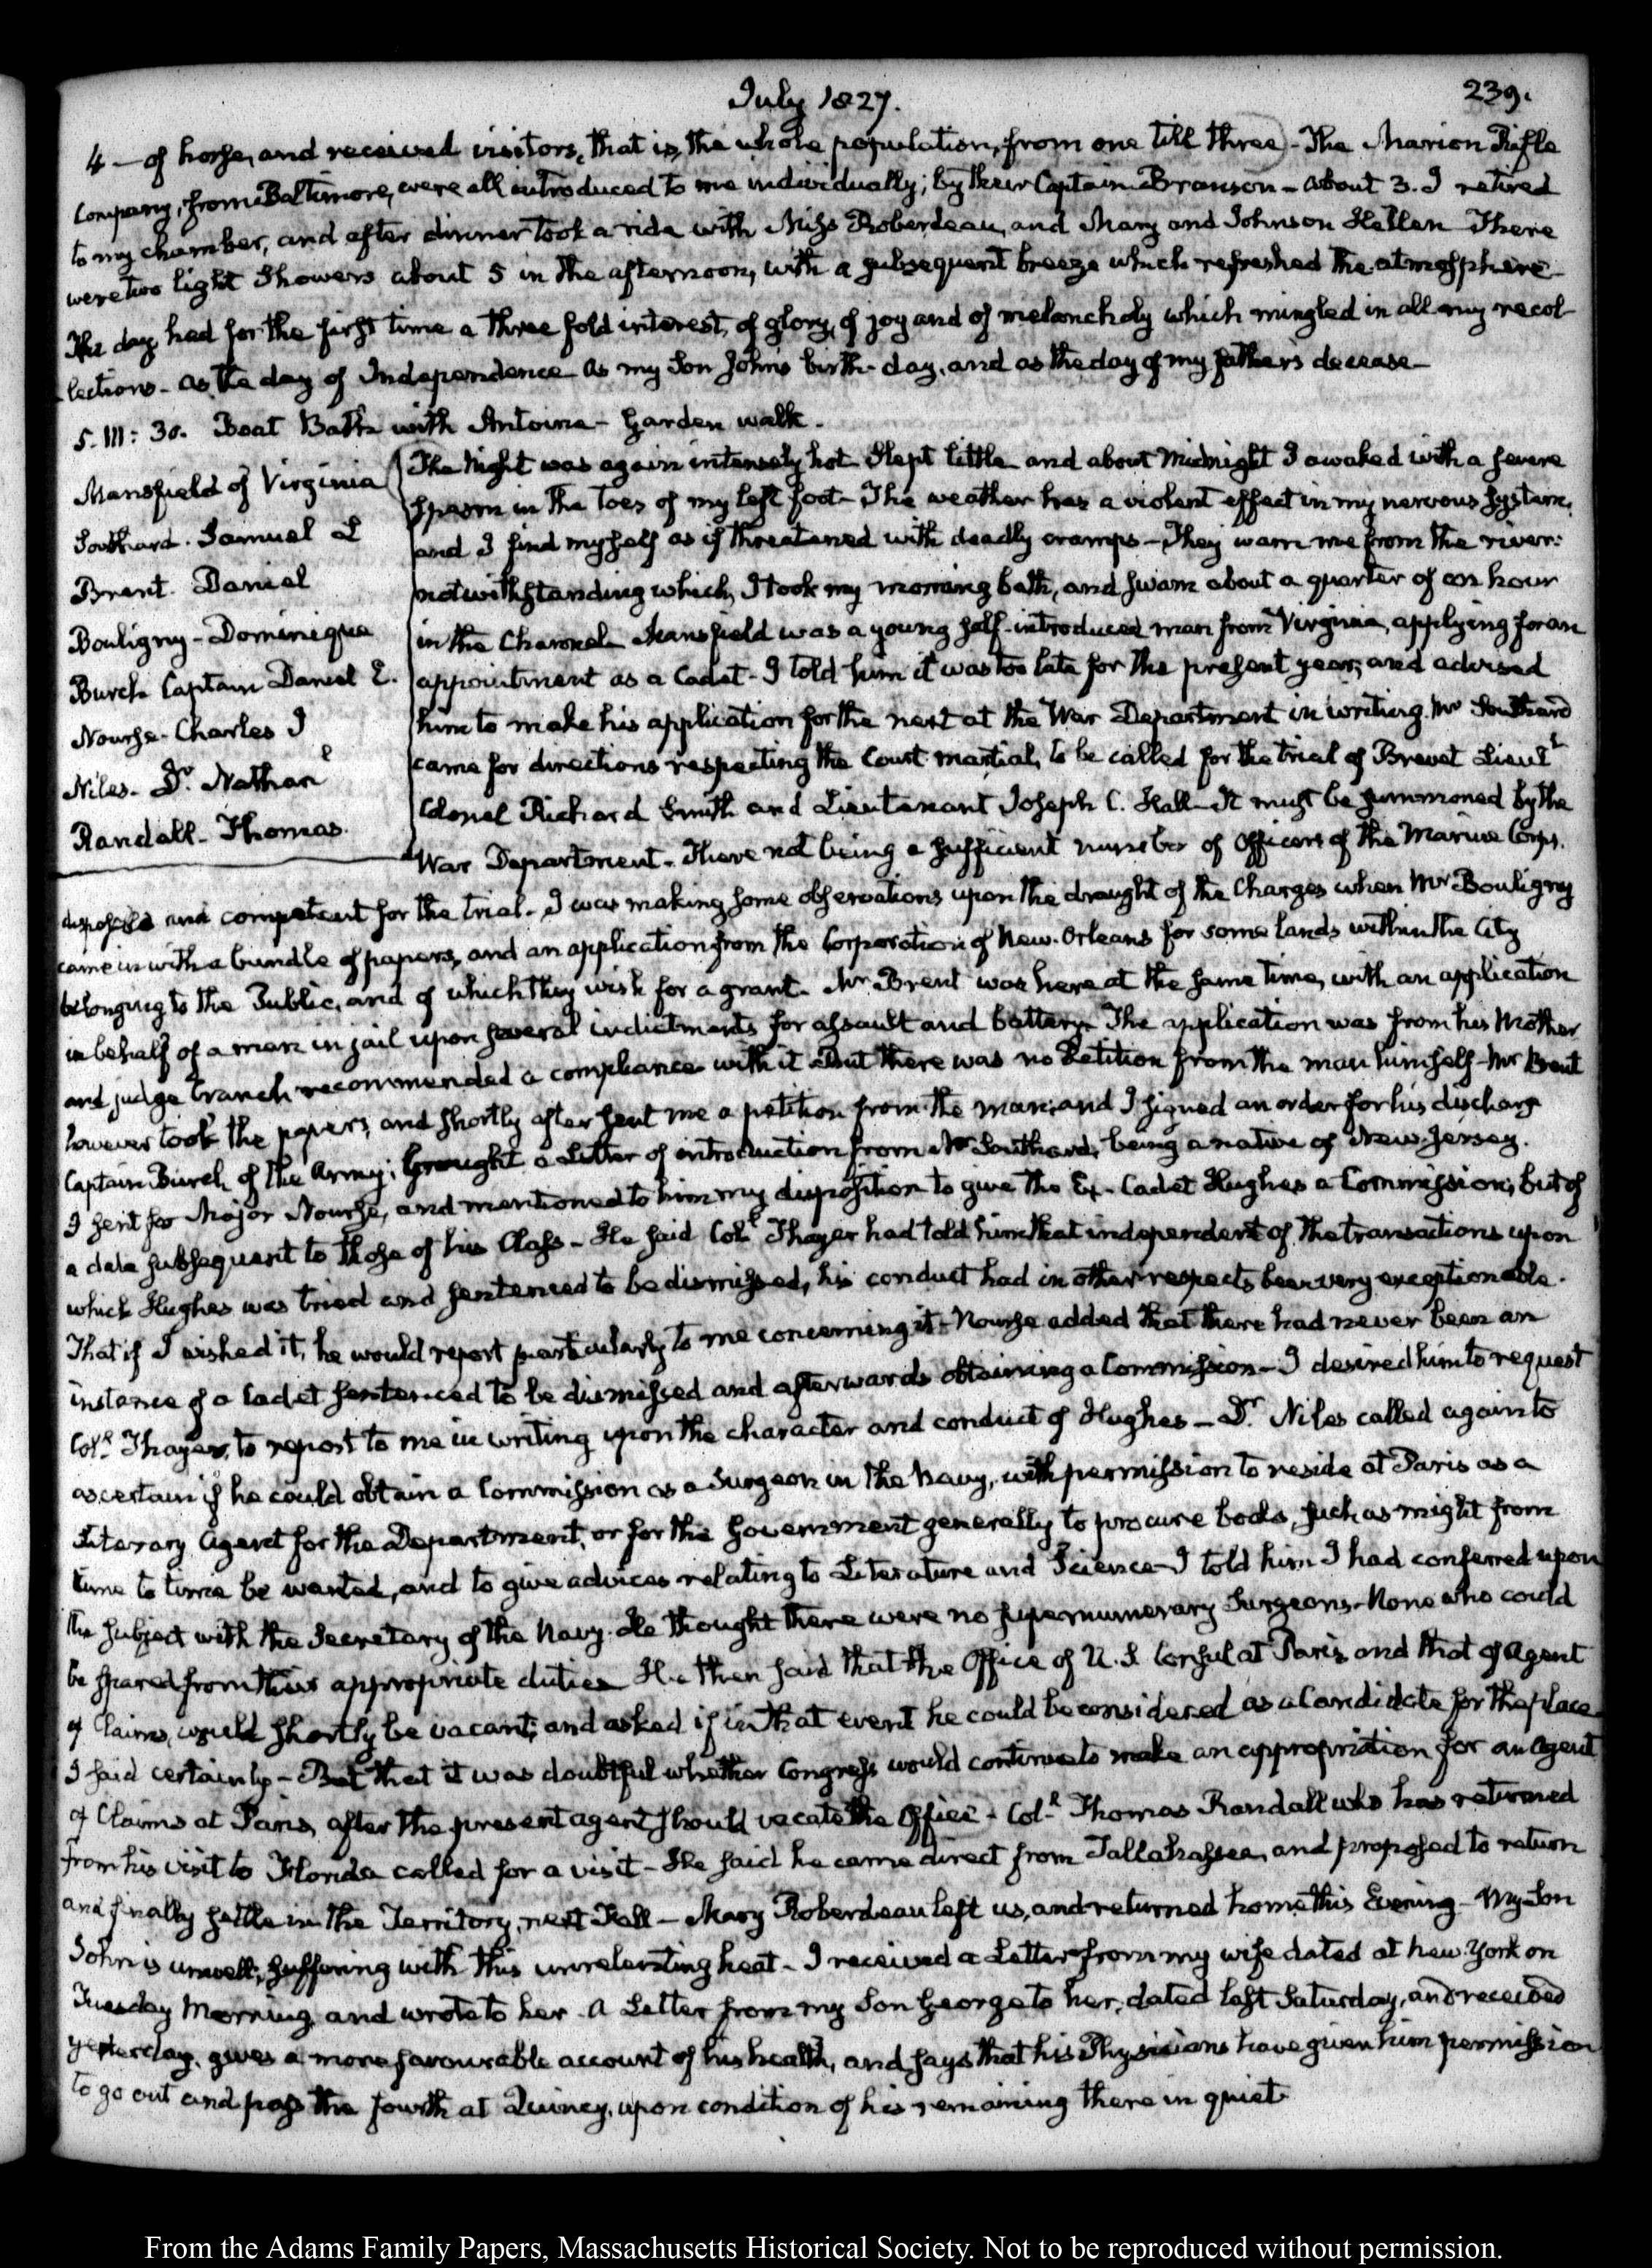 July 1827.
239.
4 — of horse, and received visitors, that is, the whole population, from one till three - The Marion Rifle
Company, from Baltimore, were all introduced to me individually; by their Captain Branson - About 3. I retired
to my chamber, and after dinner took a ride with Miss Roberdeau, and Mary and Johnson Hellen There
were two light Showers about 5 in the afternoon, with a subsequent breeze which refreshed the atmosphere
The day had for the first time a three fold interest, of glory, of joy and of melancholy which mingled in all my recol-
lections - as the day of Independence as my Son John's birth-day, and as the day of my father's decease -
5. III: 30. Boat Bath with Antoine - Garden walk.
Mansfield of Virginia
Southard. Samuel L
Brent. Daniel
Bouligny - Dominique
Burch Captain Daniel E.
Nourse - Charles J
Niles - Dr. Nathanl
Randall - Thomas.
The Night was again intensely hot Slept little and about Midnight I awaked with a severe
spasm in the toes of my left foot - The weather has a violent effect in my nervous system,
and I find myself as if threatened with deadly cramps - They warn me from the river:
notwithstanding which, I took my morning bath, and swam about a quarter of an hour
in the Channel Mansfield was a young self-introduced man from Virginia, applying for an
appointment as a Cadet - I told him it was too late for the present year; and advised
him to make his application for the next at the War Department in writing. Mr Southard
came for directions respecting the Court martial, to be called for the trial of Brevet Lieutt
Colonel Richard Smith and Lieutenant Joseph C. Hall - It must be summoned by the
War Department - There not being a sufficient number of Officers of the Marine Corps.
disposable and competent for the trial - I was making some observations upon the draught of the Charges when Mr Bouligny
came in with a bundle of papers, and an application from the Corporation of New-Orleans for some lands within the City
belonging to the Public, and of which they wish for a grant. Mr Brent was here at the same time, with an application
in behalf of a man in jail upon several indictments for assault and battery. The application was from his Mother
and judge Cranch recommended a compliance with it But there was no Petition from the man himself - Mr Brent
however took the papers, and shortly after sent me a petition from the man, and I signed an order for his discharge
Captain Burch of the Army; brought a Letter of introduction from Mr Southard, being a native of New-Jersey.
I sent for Major Nourse, and mentioned to him my disposition to give the Ex-Cadet Hughes a Commission; but of
a date subsequent to those of his Class - He said Coll Thayer had told him that independent of the transactions upon
which Hughes was tried and sentenced to be dismissed, his conduct had in other respects been very exceptionable.
That if I wished it, he would report particularly to me concerning it - Nourse added that there had never been an
instance of a Cadet sentenced to be dismissed and afterwards obtaining a Commission - I desired him to request
Coll Thayer, to report to me in writing upon the character and conduct of Hughes - Dr. Niles called again to
ascertain if he could obtain a Commission as a Surgeon in the Navy, with permission to reside at Paris as a
Literary Agent for the Department, or for the Government generally to procure books, such as might from
time to time be wanted, and to give advices relating to Literature and Science - I told him I had conferred upon
the subject with the Secretary of the Navy. He thought there were no supernumerary Surgeons - None who could
be spared from their appropriate duties He then said that the Office of U. S. Consul at Paris, and that of Agent
of Claims, would shortly be vacant; and asked if in that event he could be considered as a Candidate for the place
I said certainly - But that it was doubtful whether Congress would continue to make an appropriation for an Agent
of Claims at Paris, after the present agent should vacate the Office - Coll Thomas Randall who has returned
from his visit to Florida called for a visit - He said he came direct from Tallahassee, and proposed to return
and finally settle in the Territory, next Fall - Mary Roberdeau left us, and returned home this Evening - My Son
John is unwell; suffering with this unrelenting heat - I received a Letter from my wife dated at New-York on
Tuesday Morning and wrote to her. A Letter from my Son George to her, dated last Saturday, and received
yesterday, gives a more favourable account of his health, and says that his Physicians have given him permission
to go out and pass the fourth at Quincy, upon condition of his remaining there in quiet
From the Adams Family Papers, Massachusetts Historical Society. Not to be reproduced without permission.